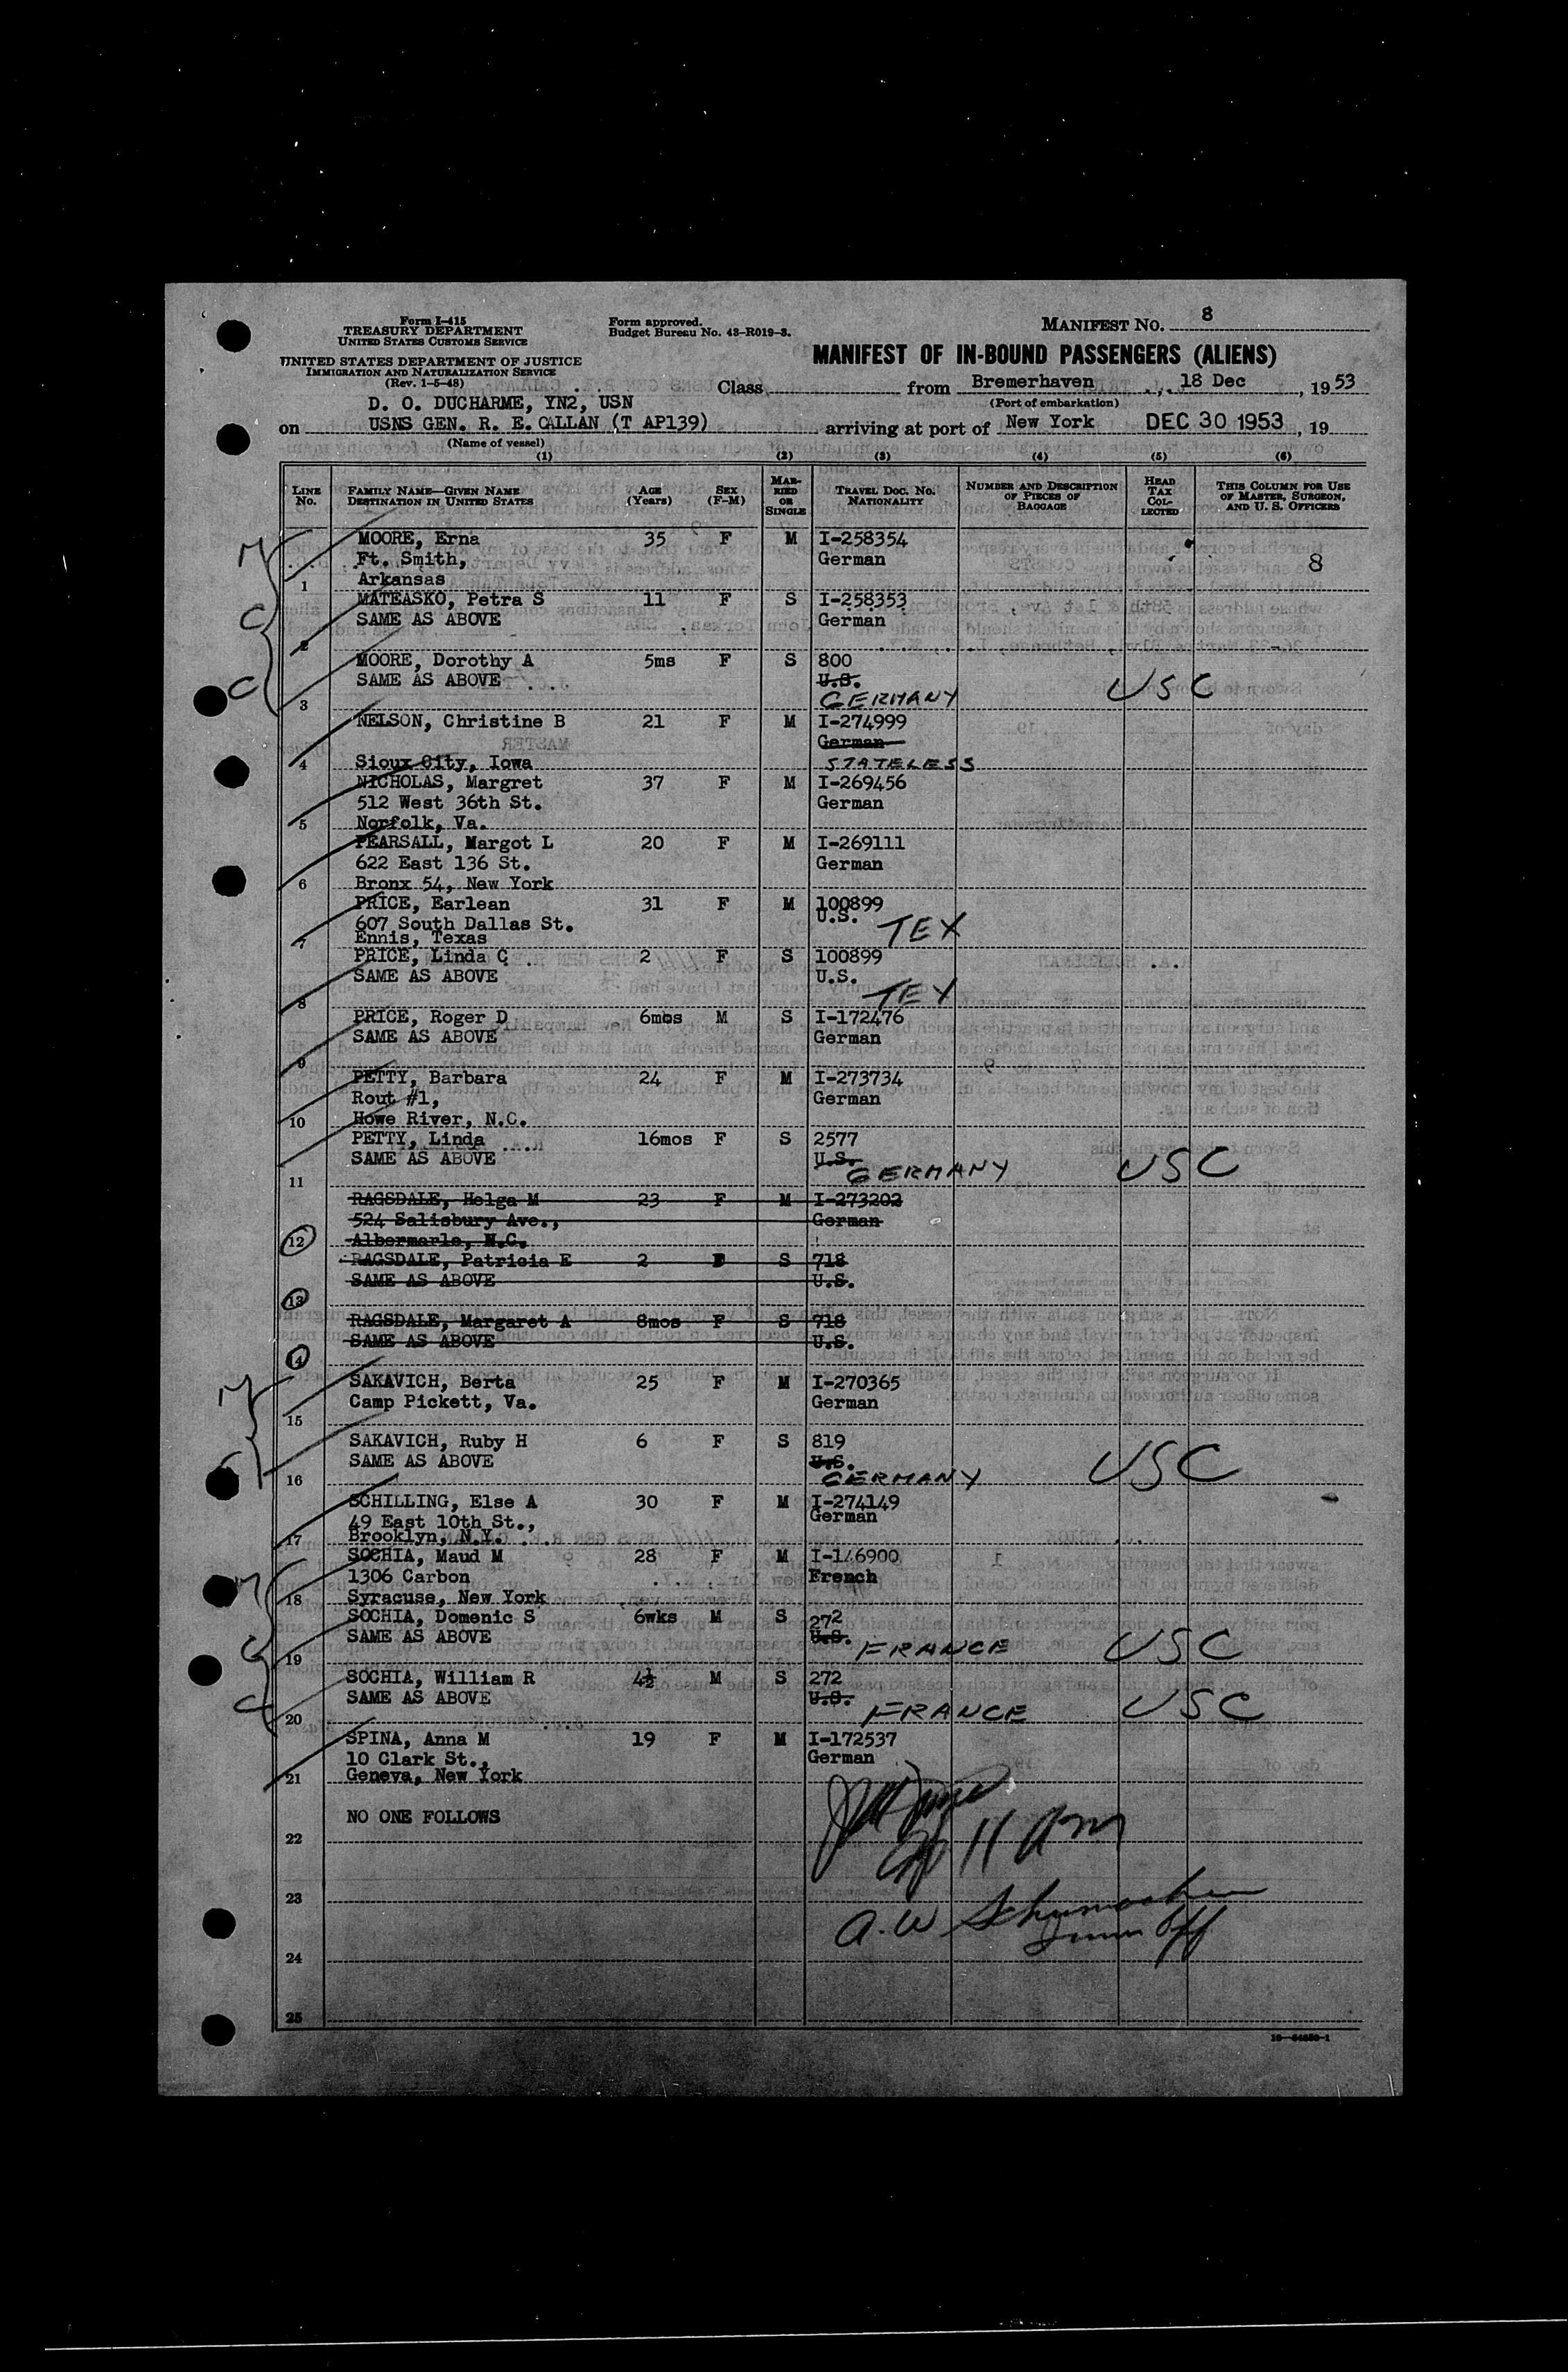 Form I-415
TREASURY DEPARTMENT
UNITED STATES CUSTOMS SERVICE
UNITED STATES DEPARTMENT OF JUSTICE
IMMIGRATION AND NATURALIZATION SERVICE
(Rev. 1-5-48)
Form approved.
Budget Bureau No. 43-R019-3.
MANIFEST NO. 8
MANIFEST OF IN-BOUND PASSENGERS (ALIENS)
Class from Bremerhaven, 18 Dec, 1953
(Port of embarkation)
D. O. DUCHARME, YN2, USN
on USNS GEN. R. E. CALLAN (T AP139) arriving at port of New York DEC 30 1953, 19
(Name of vessel)
(1) (2) (3) (4) (5) (6)
LINE No. FAMILY NAME—GIVEN NAME DESTINATION IN UNITED STATES AGE (Years) SEX (F-M) MARRIED OR SINGLE TRAVEL DOC. NO. NATIONALITY NUMBER AND DESCRIPTION OF PIECES OF BAGGAGE HEAD TAX COLLECTED THIS COLUMN FOR USE OF MASTER, SURGEON, AND U. S. OFFICERS
MOORE, Erna 35 F M I-258354
Ft. Smith, German 8
1 Arkansas
MATEASKO, Petra S 11 F S I-258353
SAME AS ABOVE German
2
MOORE, Dorothy A 5ms F S 800
SAME AS ABOVE U.S. USC
3 GERMANY
NELSON, Christine B 21 F M I-274999
German
4 Sioux City, Iowa STATELESS
NICHOLAS, Margret 37 F M I-269456
512 West 36th St. German
5 Norfolk, Va.
PEARSALL, Margot L 20 F M I-269111
622 East 136 St. German
6 Bronx 54, New York
PRICE, Earlean 31 F M 100899
607 South Dallas St. U.S. TEX
7 Ennis, Texas
PRICE, Linda C 2 F S 100899
SAME AS ABOVE U.S.
8 TEX
PRICE, Roger D 6mos M S I-172476
SAME AS ABOVE German
9
PETTY, Barbara 24 F M I-273734
Rout #1, German
10 Howe River, N.C.
PETTY, Linda 16mos F S 2577
SAME AS ABOVE U.S. GERMANY USC
11
RAGSDALE, Helga M 23 F M I-273202
524 Salisbury Ave., German
12 Albermarle, N.C.
RAGSDALE, Patricia E 2 F S 718
SAME AS ABOVE U.S.
13
RAGSDALE, Margaret A 8mos F S 718
SAME AS ABOVE U.S.
14
SAKAVICH, Berta 25 F M I-270365
Camp Pickett, Va. German
15
SAKAVICH, Ruby H 6 F S 819
SAME AS ABOVE U.S. USC
16 GERMANY
SCHILLING, Else A 30 F M I-274149
49 East 10th St., German
17 Brooklyn, N.Y.
SOCHIA, Maud M 28 F M I-146900
1306 Carbon French
18 Syracuse, New York
SOCHIA, Domenic S 6wks M S 272
SAME AS ABOVE U.S. FRANCE USC
19
SOCHIA, William R 4½ M S 272
SAME AS ABOVE U.S. FRANCE USC
20
SPINA, Anna M 19 F M I-172537
10 Clark St., German
21 Geneva, New York
NO ONE FOLLOWS
22
11 am
23
A. W. Schumacher
Imm Off
24
25